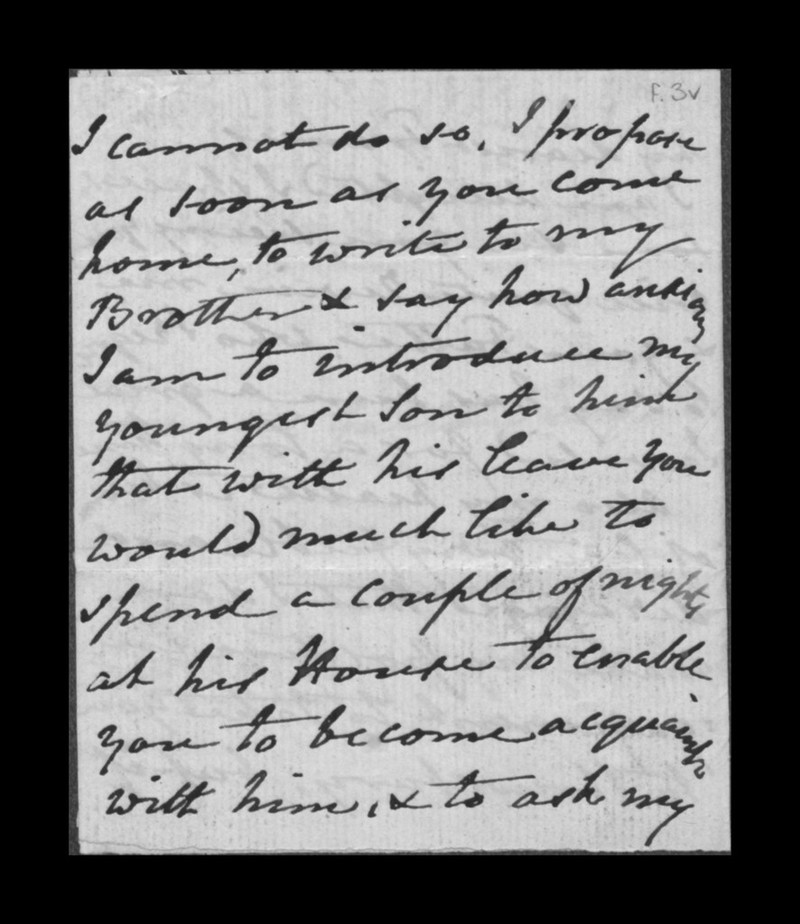 f. 3v
I cannot do so, I propose
as soon as you come
home, to write to my
Brother & say how anxious
I am to introduce my
youngest Son to him
that with his leave you
would much like to
spend a couple of nights
at his House to enable
you to become acquainted
with him, & to ask my